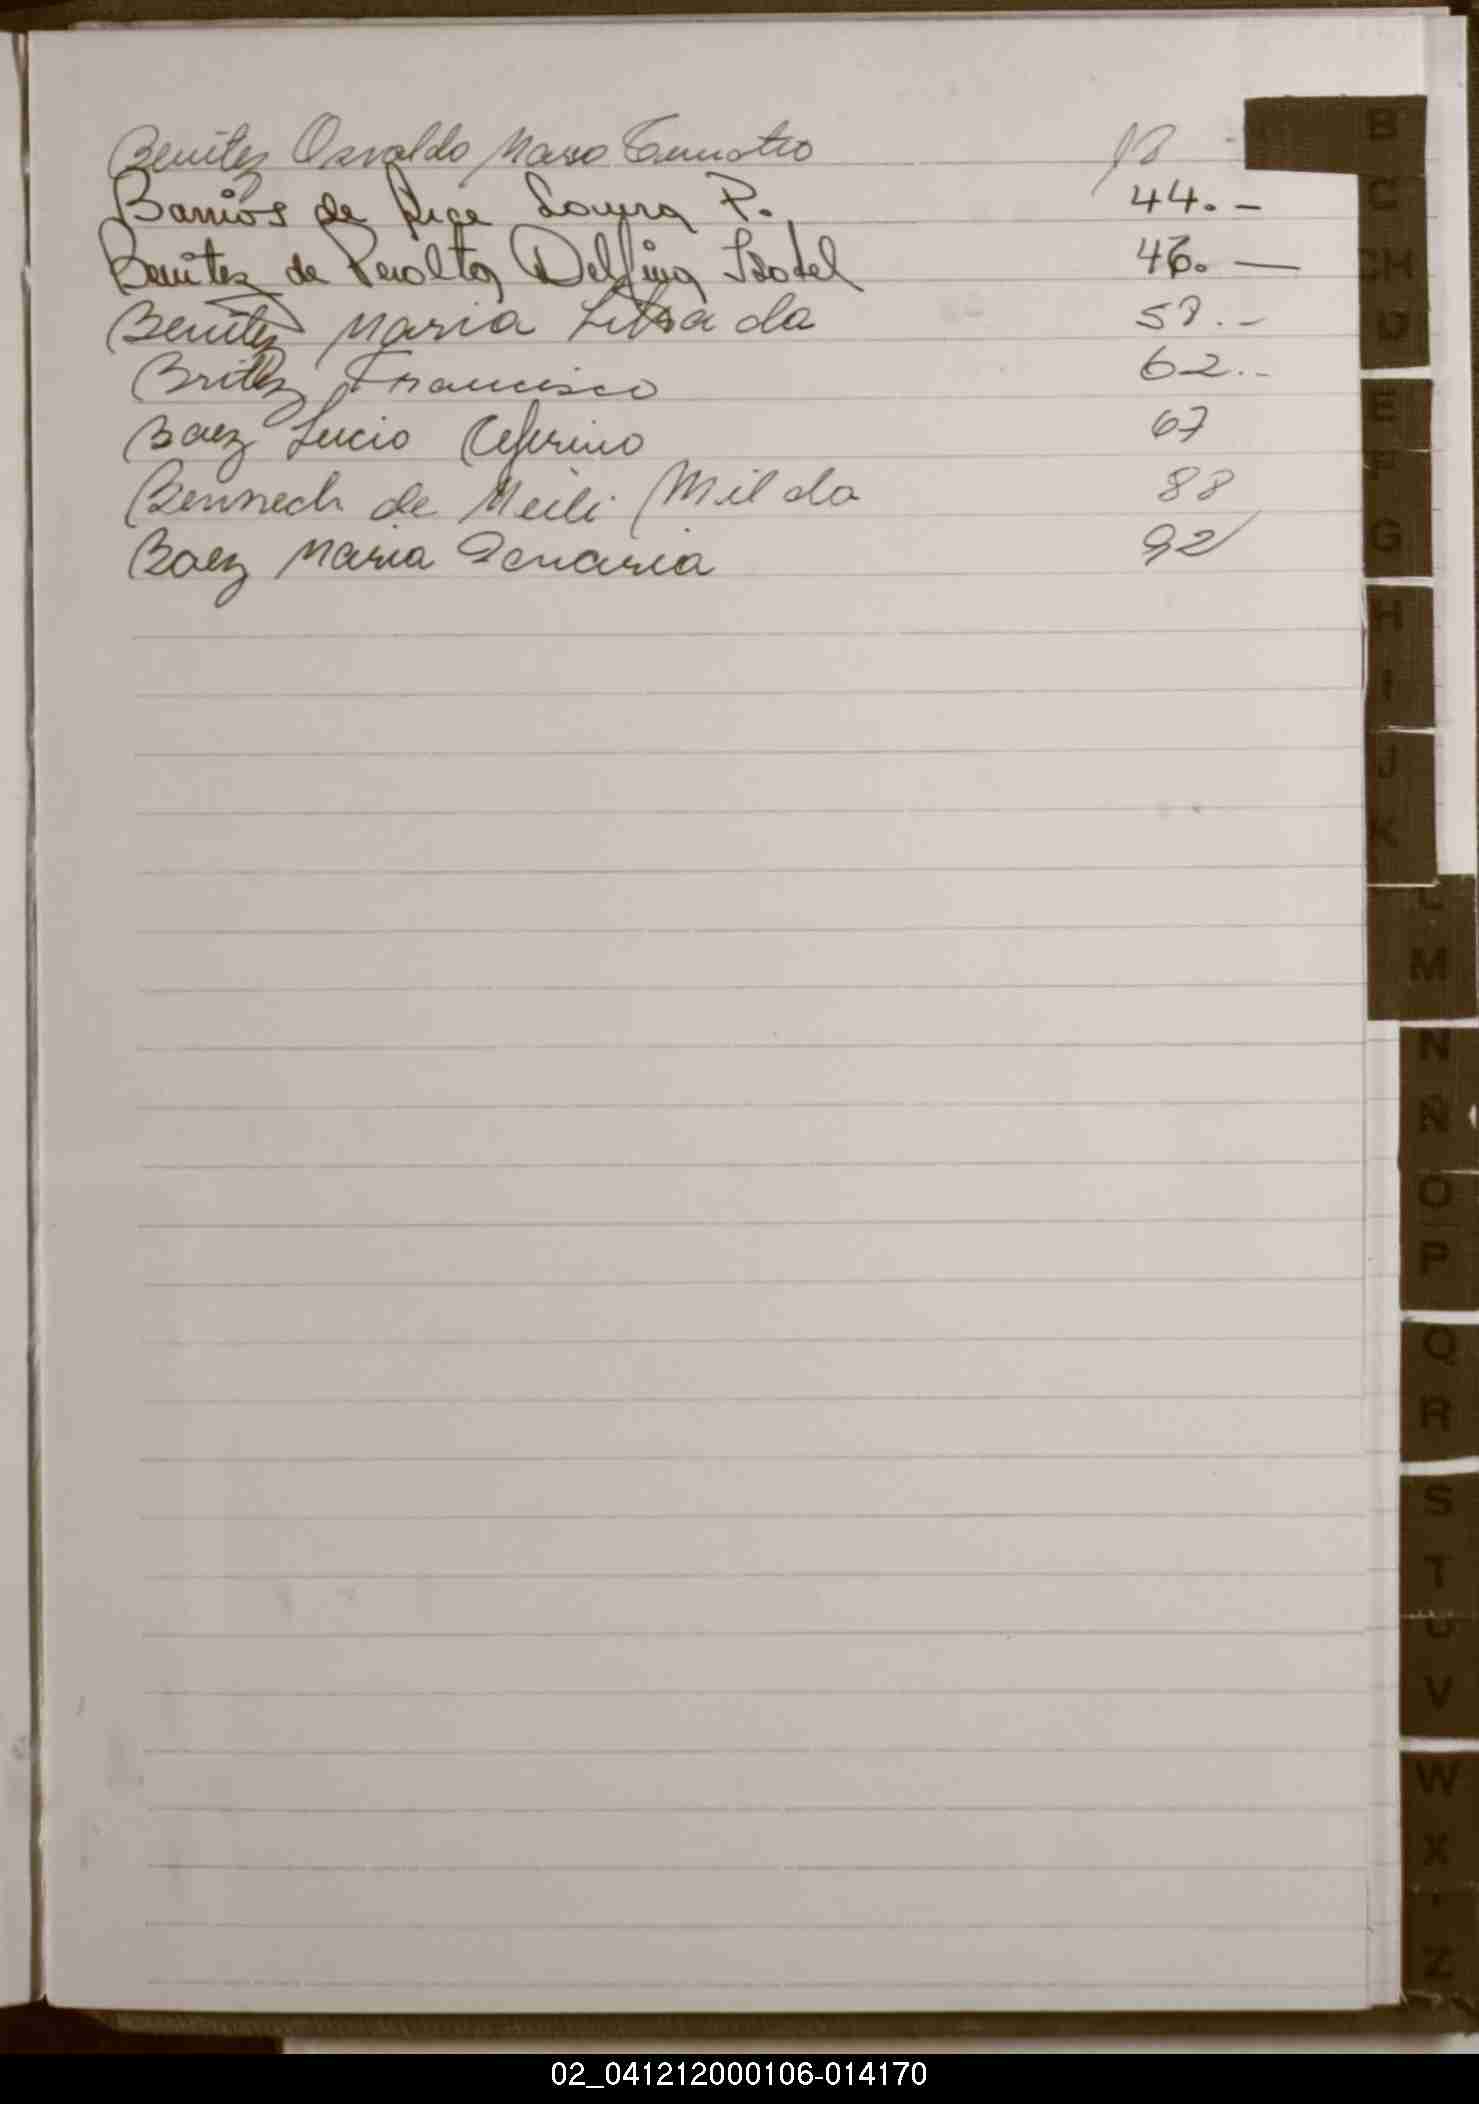 Benitez Osvaldo Maso 18
Barrios de P. 44.-
Benitez de Peralta Delfina Isabel 46.—
Benitez Maria Librada 58.-
Britez Francisco 62.-
Baez Lucio Ceferino 67
Bennech de Meili Milda 88
Baez Maria Genaria 92
B
C
CH
D
E
F
G
H
I
J
K
L
M
N
Ñ
O
P
Q
R
S
T
U
V
W
X
Z
02_041212000106-014170